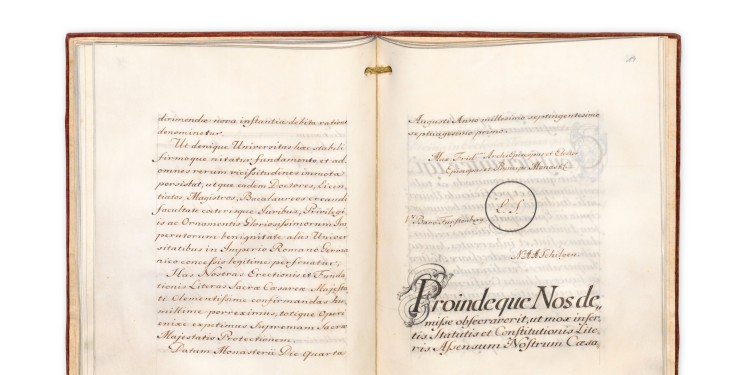 dirimendæ nova instantia debita ratione
denominetur.
Ut denique Universitas hæc stabili
firmoque nitatur fundamento et ad
omnes rerum vicissitudines immota
persistat, utque eadem Doctores, Licen,
tiatos, Magistros, Baccalaureos creandi
facultate cæterisque Juribus, Privilegi,
is ac Ornamentis Gloriosissimorum Im,
peratorum benignitate aliis Univer,
sitatibus in Imperio Romano Germa,
nico concessis legitime perfruatur;
Has Nostras Erectionis et Funda,
tionis Literas Sacræ Cæsareæ Majesta,
ti Clementissime confirmandas hu,
millime porreximus, totique Operi
enixe expetimus Supremam Sacræ
Majestatis Protectionem.
Datum Monasterii Die Quarta
Augusti Anno millesimo septingentesimo
septuagesimo primo.
Max. Frid. Archi Episcopus et Elector
Episcopus et Princeps Monast.
L.S.
Baro Furstenberg
Schilgen
Proindeque Nos de,
misse obsecraverit, ut mox inser,
tis Statutis et Constitutionis Lite,
ris Assensum Nostrum Cæsa,